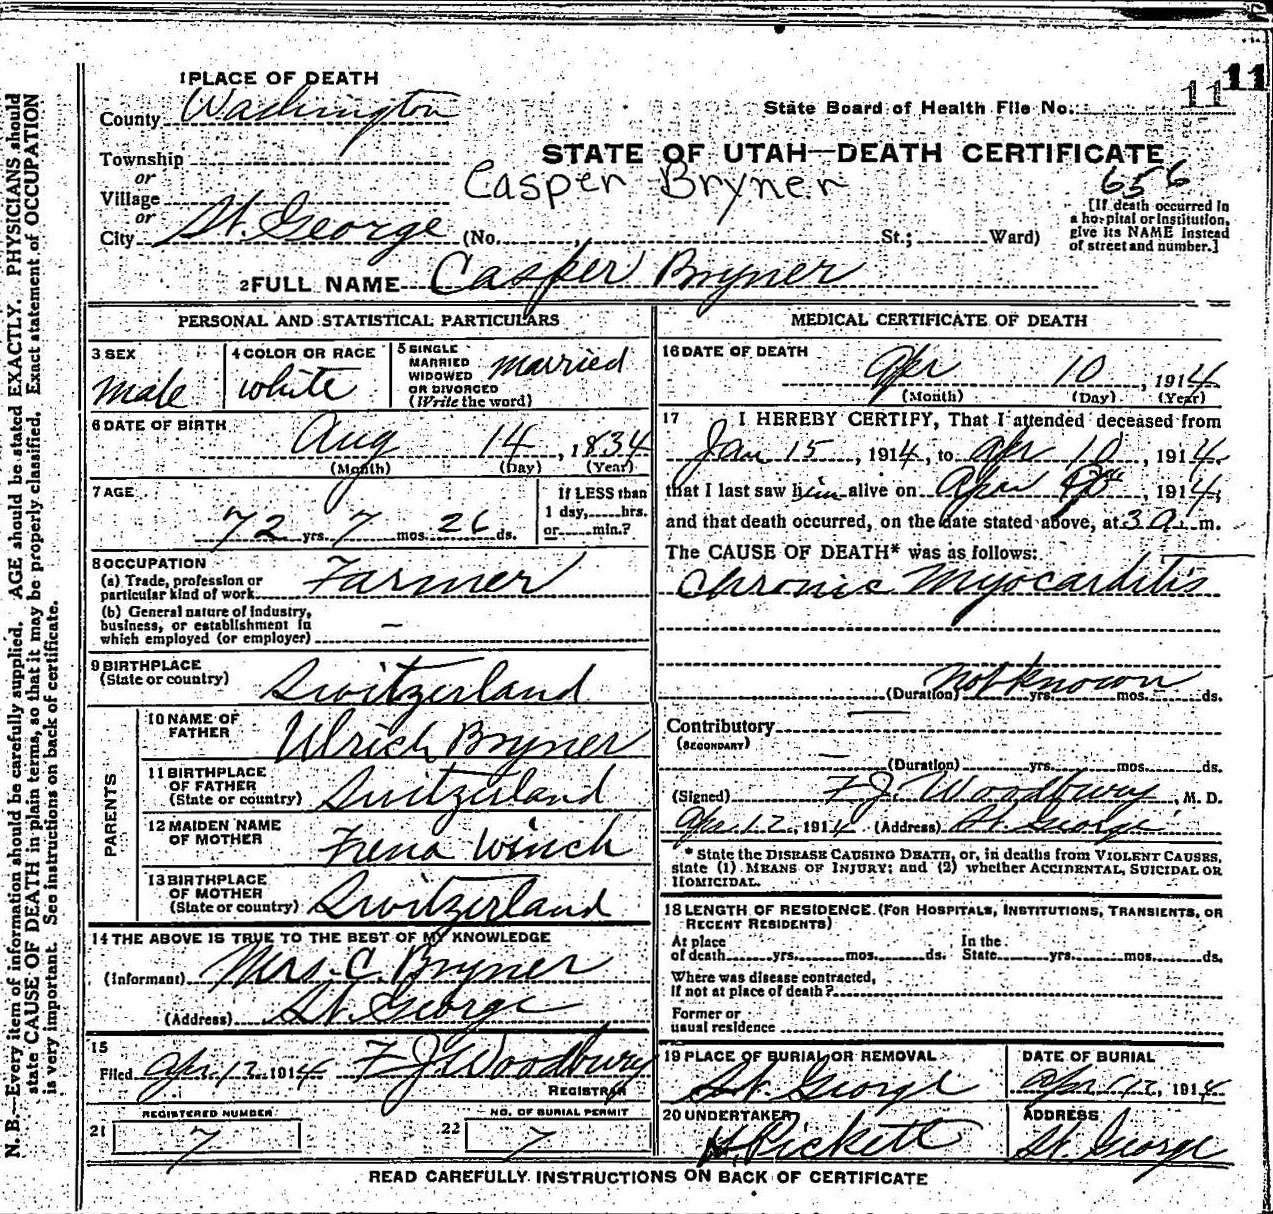 11 11
1 PLACE OF DEATH
County Washington
State Board of Health File No.
Township
or
Village
or
City St. George
STATE OF UTAH—DEATH CERTIFICATE
Casper Bryner
656
[If death occurred in
a hospital or institution,
give its NAME instead
of street and number.]
(No. , St.; Ward)
2 FULL NAME Casper Bryner
PERSONAL AND STATISTICAL PARTICULARS
3 SEX
Male
4 COLOR OR RACE
White
5 SINGLE
MARRIED
WIDOWED
OR DIVORCED
(Write the word)
Married
6 DATE OF BIRTH
Aug 14, 1834
(Month) (Day) (Year)
7 AGE
72 yrs. 7 mos. 26 ds.
If LESS than
1 day, hrs.
or min.?
8 OCCUPATION
(a) Trade, profession or
particular kind of work Farmer
(b) General nature of Industry,
business, or establishment in
which employed (or employer) —
9 BIRTHPLACE
(State or country) Switzerland
PARENTS
10 NAME OF
FATHER Ulrich Bryner
11 BIRTHPLACE
OF FATHER
(State or country) Switzerland
12 MAIDEN NAME
OF MOTHER Frena Winch
13 BIRTHPLACE
OF MOTHER
(State or country) Switzerland
14 THE ABOVE IS TRUE TO THE BEST OF MY KNOWLEDGE
(Informant) Mrs. C. Bryner
(Address) St. George
15
Filed Apr. 12 1914 F J Woodbury
REGISTRAR
REGISTERED NUMBER
21 7
NO. OF BURIAL PERMIT
22 7
MEDICAL CERTIFICATE OF DEATH
16 DATE OF DEATH
Apr 10, 1914
(Month) (Day) (Year)
17 I HEREBY CERTIFY, That I attended deceased from
Jan 15, 1914, to Apr 10, 1914,
that I last saw him alive on Apr, 1914,
and that death occurred, on the date stated above, at 3 a. m.
The CAUSE OF DEATH* was as follows:
Chronic Myocarditis
not known
(Duration) yrs. mos. ds.
Contributory
(SECONDARY)
(Duration) yrs. mos. ds.
(Signed) F. J. Woodbury, M. D.
Apr. 12, 1914 (Address) St. George
* State the DISEASE CAUSING DEATH, or, in deaths from VIOLENT CAUSES,
state (1) MEANS OF INJURY; and (2) whether ACCIDENTAL, SUICIDAL OR
HOMICIDAL.
18 LENGTH OF RESIDENCE (FOR HOSPITALS, INSTITUTIONS, TRANSIENTS, OR
RECENT RESIDENTS)
At place
of death yrs. mos. ds.
In the
State yrs. mos. ds.
Where was disease contracted,
if not at place of death?
Former or
usual residence
19 PLACE OF BURIAL OR REMOVAL
St. George
DATE OF BURIAL
Apr 12, 1914
20 UNDERTAKER
H. Pickett
ADDRESS
St. George
READ CAREFULLY INSTRUCTIONS ON BACK OF CERTIFICATE
N. B.—Every item of information should be carefully supplied. AGE should be stated EXACTLY. PHYSICIANS should
state CAUSE OF DEATH in plain terms, so that it may be properly classified. Exact statement of OCCUPATION
is very important. See instructions on back of certificate.